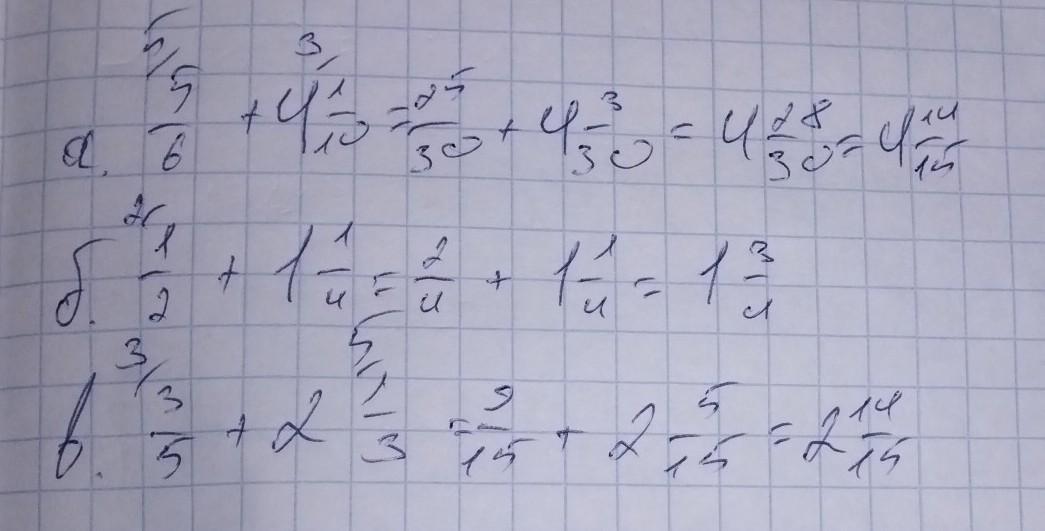 а. 5/ 5/6 + 4 3/ 1/10 = 25/30 + 4 3/30 = 4 28/30 = 4 14/15
б. 2/ 1/2 + 1 1/4 = 2/4 + 1 1/4 = 1 3/4
в. 3/ 3/5 + 2 5/ 1/3 = 9/15 + 2 5/15 = 2 14/15